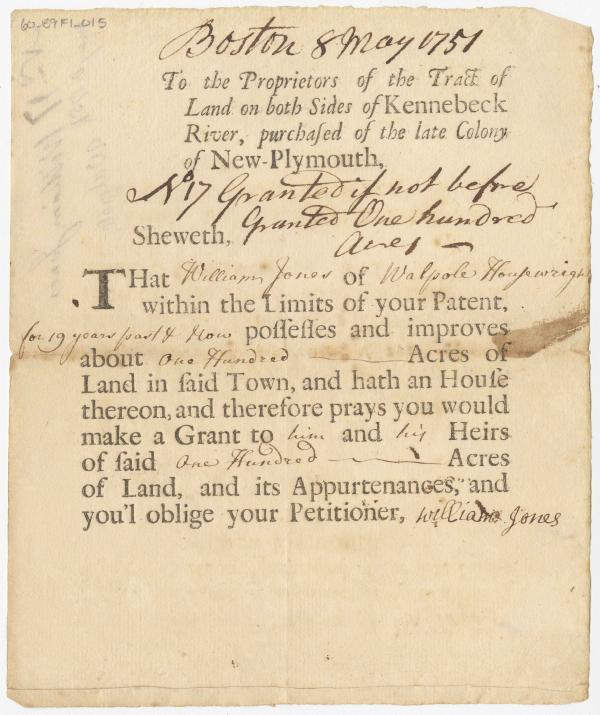 60-89F1-015
Boston 8 May 1751
To the Proprietors of the Tract of
Land on both Sides of Kennebeck
River, purchaſed of the late Colony
of New-Plymouth,
No 17 Granted if not before
Granted One hundred
Sheweth,
Acres
THat William Jones of Walpole Housewright
within the Limits of your Patent,
for 19 years past & Now poſſeſſes and improves
about One Hundred Acres of
Land in ſaid Town, and hath an Houſe
thereon, and therefore prays you would
make a Grant to him and his Heirs
of ſaid One Hundred Acres
of Land, and its Appurtenances, and
you'l oblige your Petitioner, William Jones